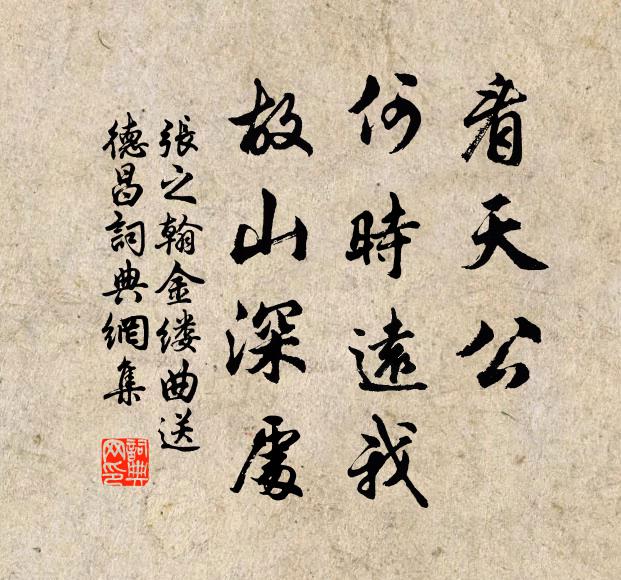 看天公
何時遠我
故山深處
張之翰金缕曲送
德昌詞典網集
詞典
网印